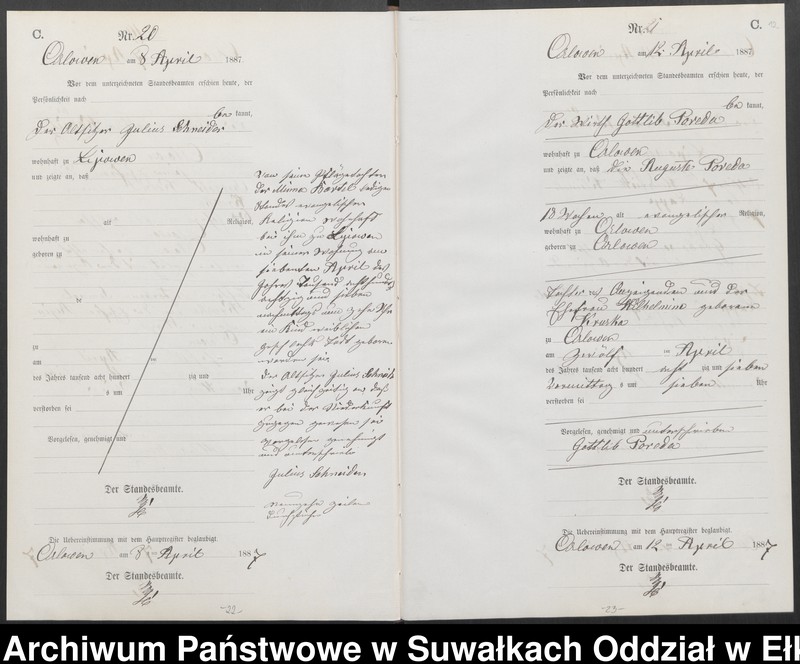 C.
Nr. 20
Orlowen am 8 April 1887
Vor dem unterzeichneten Standesbeamten erschien heute, der
Persönlichkeit nach
be kannt,
der Altsitzer Julius Schneider
wohnhaft zu Lipowen
und zeigte an, daß
alt Religion,
wohnhaft zu
geboren zu
de
zu
am im
des Jahres tausend acht hundert zig und
s um Uhr
verstorben sei
Vorgelesen, genehmigt und
von seiner
der Mina Bartel ledigen
Standes evangelischer
Religion wohnhaft
bei ihm zu Lipowen
in seiner Wohnung am
siebenten April des
Jahres Tausend achthundert
achtzig und sieben
nachmittags um Uhr
ein Kind weiblichen
Geschlechts todt geboren
worden sei
der Altsitzer Julius Schneider
zeigt gleichzeitig an, daß
er bei der Niederkunft
zugegen gewesen sei
vorgelesen genehmigt
und unterschrieben
Julius Schneider
neunzehn Zeilen
Der Standesbeamte.
Die Uebereinstimmung mit dem Hauptregister beglaubigt.
Orlowen am 8 April 1887
Der Standesbeamte.
-22-
C.
Nr. 21
Orlowen am 12 April 1887
Vor dem unterzeichneten Standesbeamten erschien heute, der
Persönlichkeit nach
be kannt,
der Wirth Gottlieb Poreda
wohnhaft zu Orlowen
und zeigte an, daß die Auguste Poreda
Wochen alt evangelischer Religion,
wohnhaft zu Orlowen
geboren zu Orlowen
Tochter des Anzeigenden und der
Ehefrau Wilhelmine geborene
Kruska
zu Orlowen
am zwölf im April
des Jahres tausend acht hundert acht zig und sieben
Vormittag s um sieben Uhr
verstorben sei
Vorgelesen, genehmigt und unterschrieben
Gottlieb Poreda
Der Standesbeamte.
Die Uebereinstimmung mit dem Hauptregister beglaubigt.
Orlowen am 12 April 1887
Der Standesbeamte.
-23-
Archiwum Państwowe w Suwałkach Oddział w Ełk